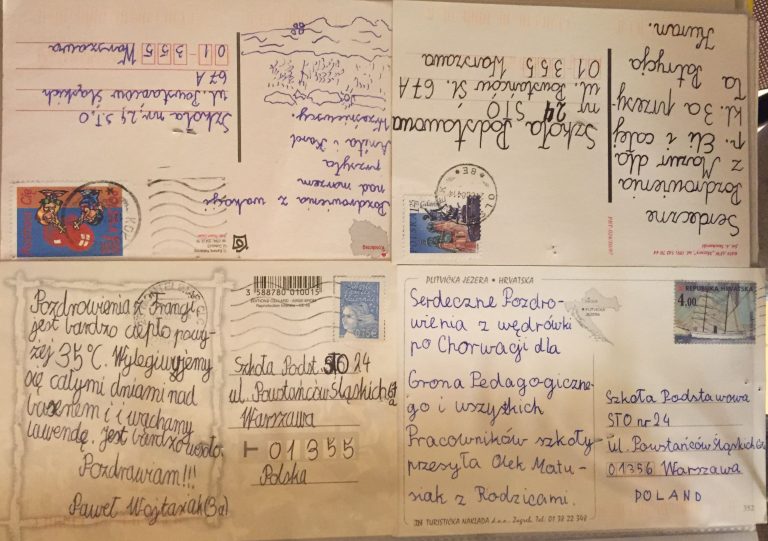 Pozdrowienia z wakacji
nad morzem
przesyła
Anita i Karol
Szkoła nr. 24 S.T.O
ul. Powstańców Śląskich
67A
01355 Warszawa
Kołobrzeg
Serdeczne
Pozdrowienia
z Mazur dla
p. Eli i całej
kl. 3a przesy-
ła Patrycja
Kuran.
Szkoła Podstawowa
nr 24 STO
ul. Powstańców Śl. 67A
01 355 Warszawa
Pozdrowienia z Francji
jest bardzo ciepło powy-
żej 35°C. Wylegiwujemy
się całymi dniami nad
basenem i i wąchamy
lawendę. Jest bardzo wsoło.
Pozdrawiam!!!
Paweł Wojtasiak (3a)
3 588780 010015
0,75€
Szkoła Podst. STO 24
ul. Powstańców Śląskich 67a
Warszawa
01355
Polska
PLITVIČKA JEZERA • HRVATSKA
Serdeczne Pozdro-
wienia z wędrówki
po Chorwacji dla
Grona Pedagogiczne-
go i wszystkich
Pracowników szkoły
przesyła Olek Matu-
siak z Rodzicami.
TURISTIČKA NAKLADA d.o.o. Zagreb, Tel. 01 38 22 348
PLITVIČKA
JEZERA
REPUBLIKA HRVATSKA
4.00
Szkoła Podstawowa
STO nr 24
ul. Powstańców Śląskich 67a
01356 Warszawa
POLAND
352